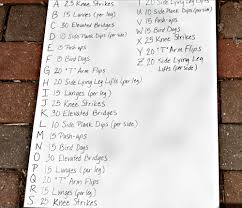 A 25 Knee Strikes
B 15 Lunges (per leg)
C 30 Elevated Bridges
D 10 Side Plank Dips (per side)
E 15 Push-ups
F 15 Bird Dogs
G 20 "T" Arm Flips
H 20 Side Lying Leg Lifts (per side)
I 15 Lunges (per leg)
J 25 Knee Strikes
K 30 Elevated Bridges
L 10 Side Plank Dips (per side)
M 15 Push-ups
N 15 Bird Dogs
O 30 Elevated Bridges
P 20 "T" Arm Flips
Q 15 Lunges (per leg)
R 25 Knee Strikes
S
T 20 Side Lying Leg Lifts
U 10 Side Plank Dips (per side)
V 15 Push-ups
W 15 Bird Dogs
X 25 Knee Strikes
Y 20 "T" Arm Flips
Z 20 Side Lying Leg Lifts (per side)